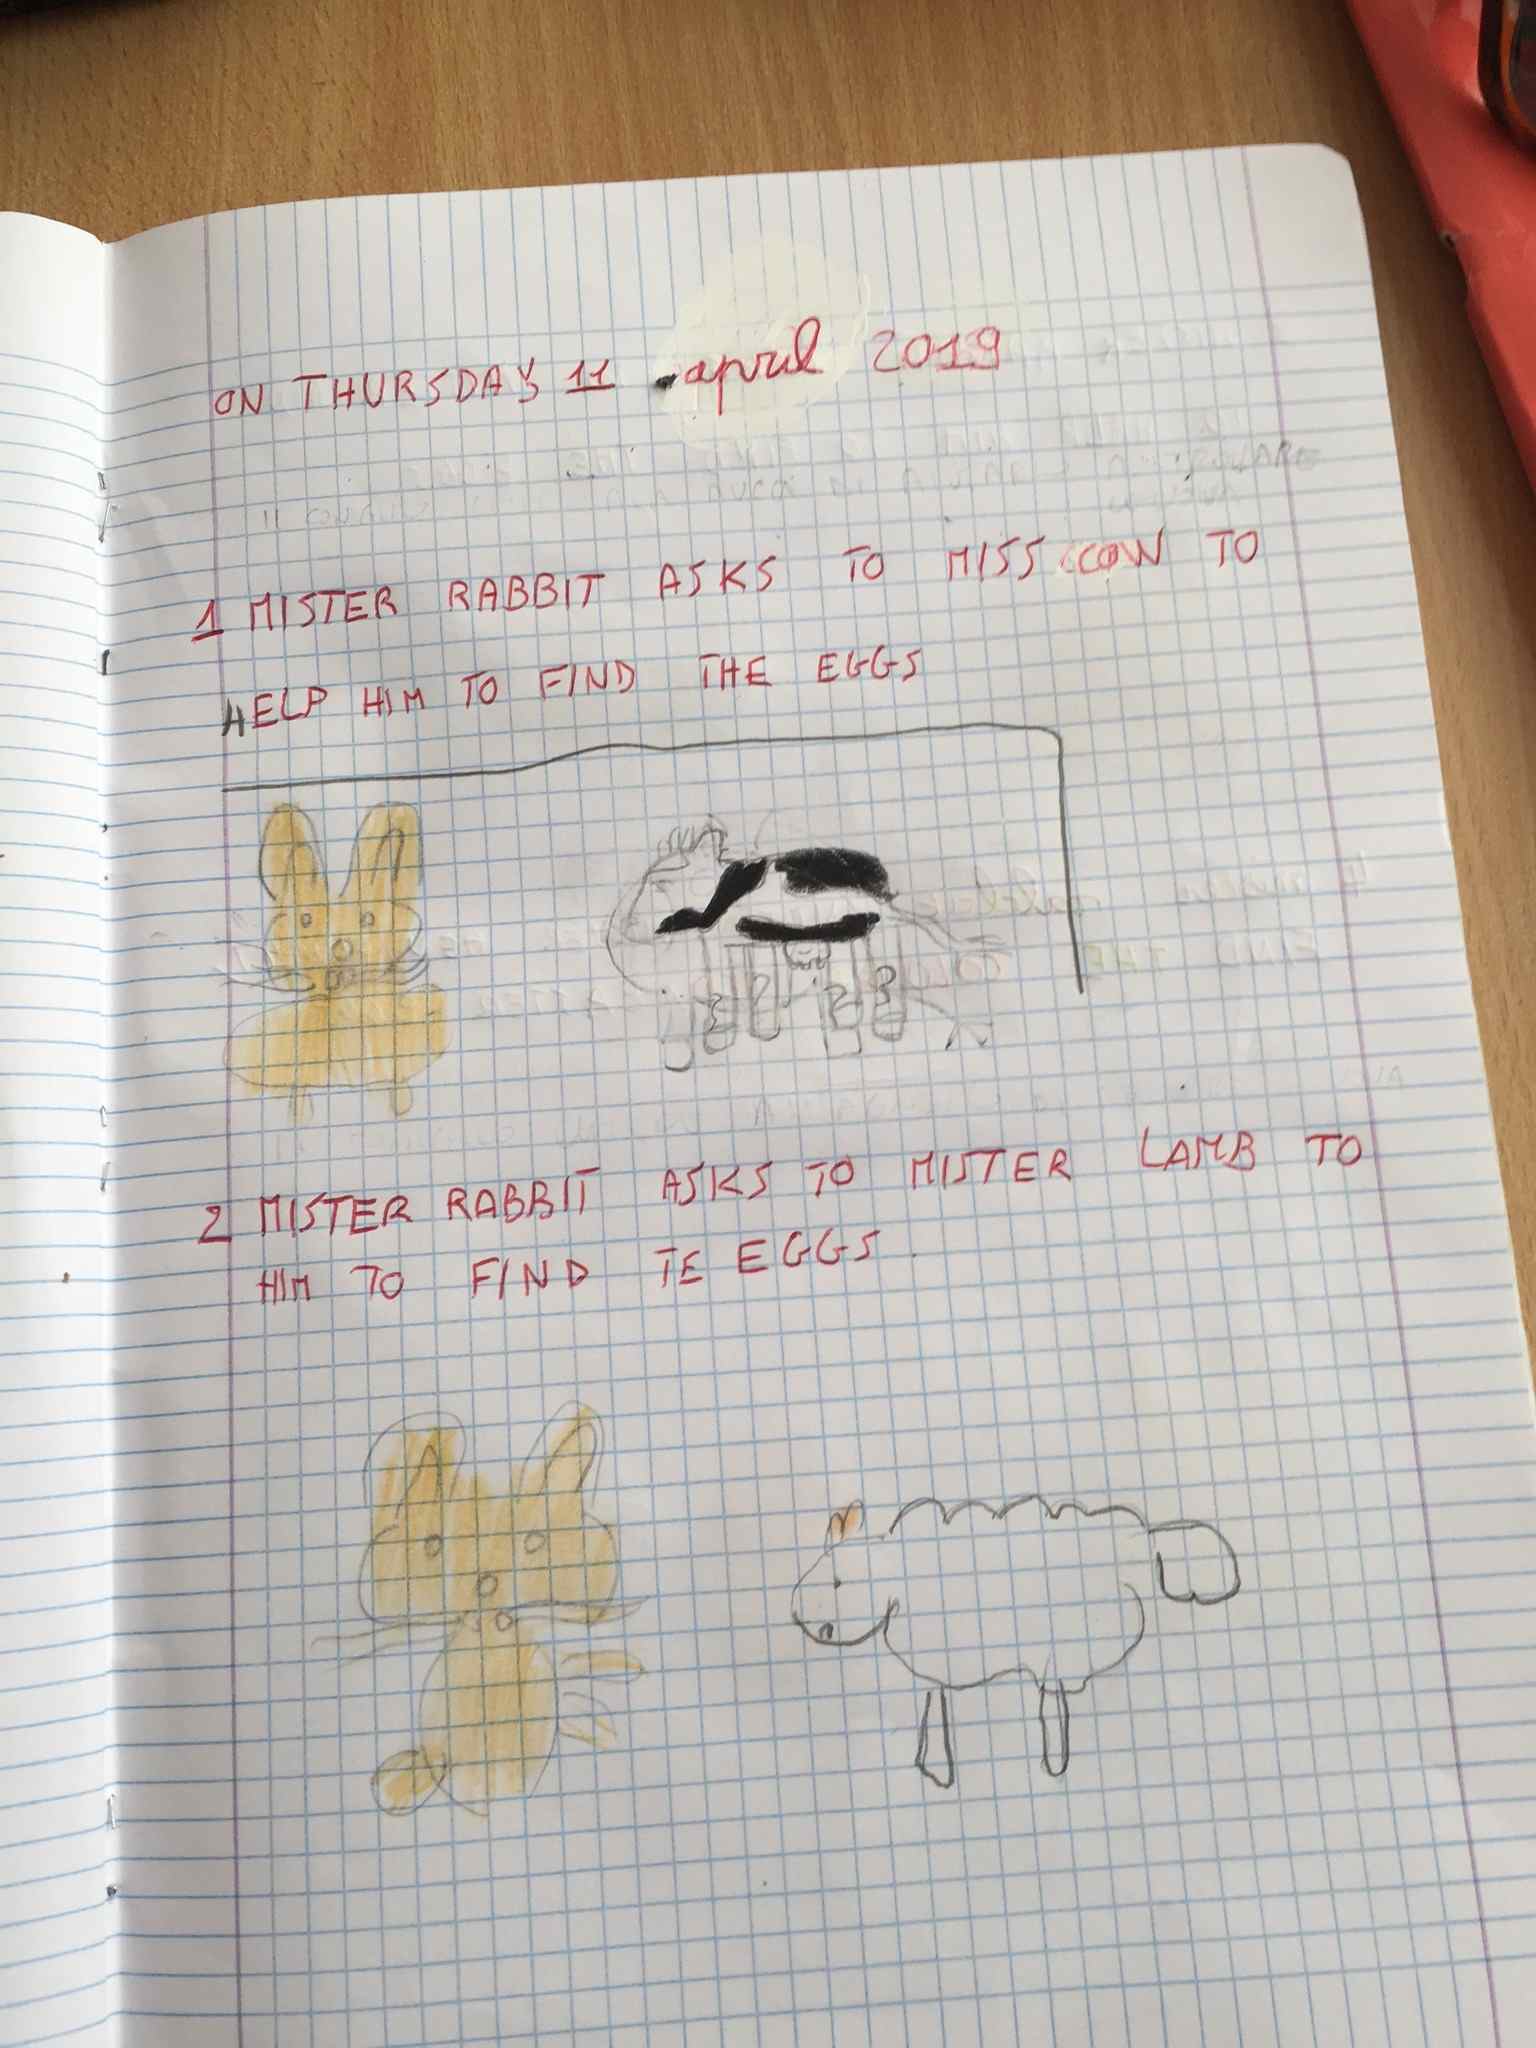 ON THURSDAY 11 april 2019
1 MISTER RABBIT ASKS TO MISS COW TO
HELP HIM TO FIND THE EGGS
2 MISTER RABBIT ASKS TO MISTER LAMB TO
HIM TO FIND TE EGGS.